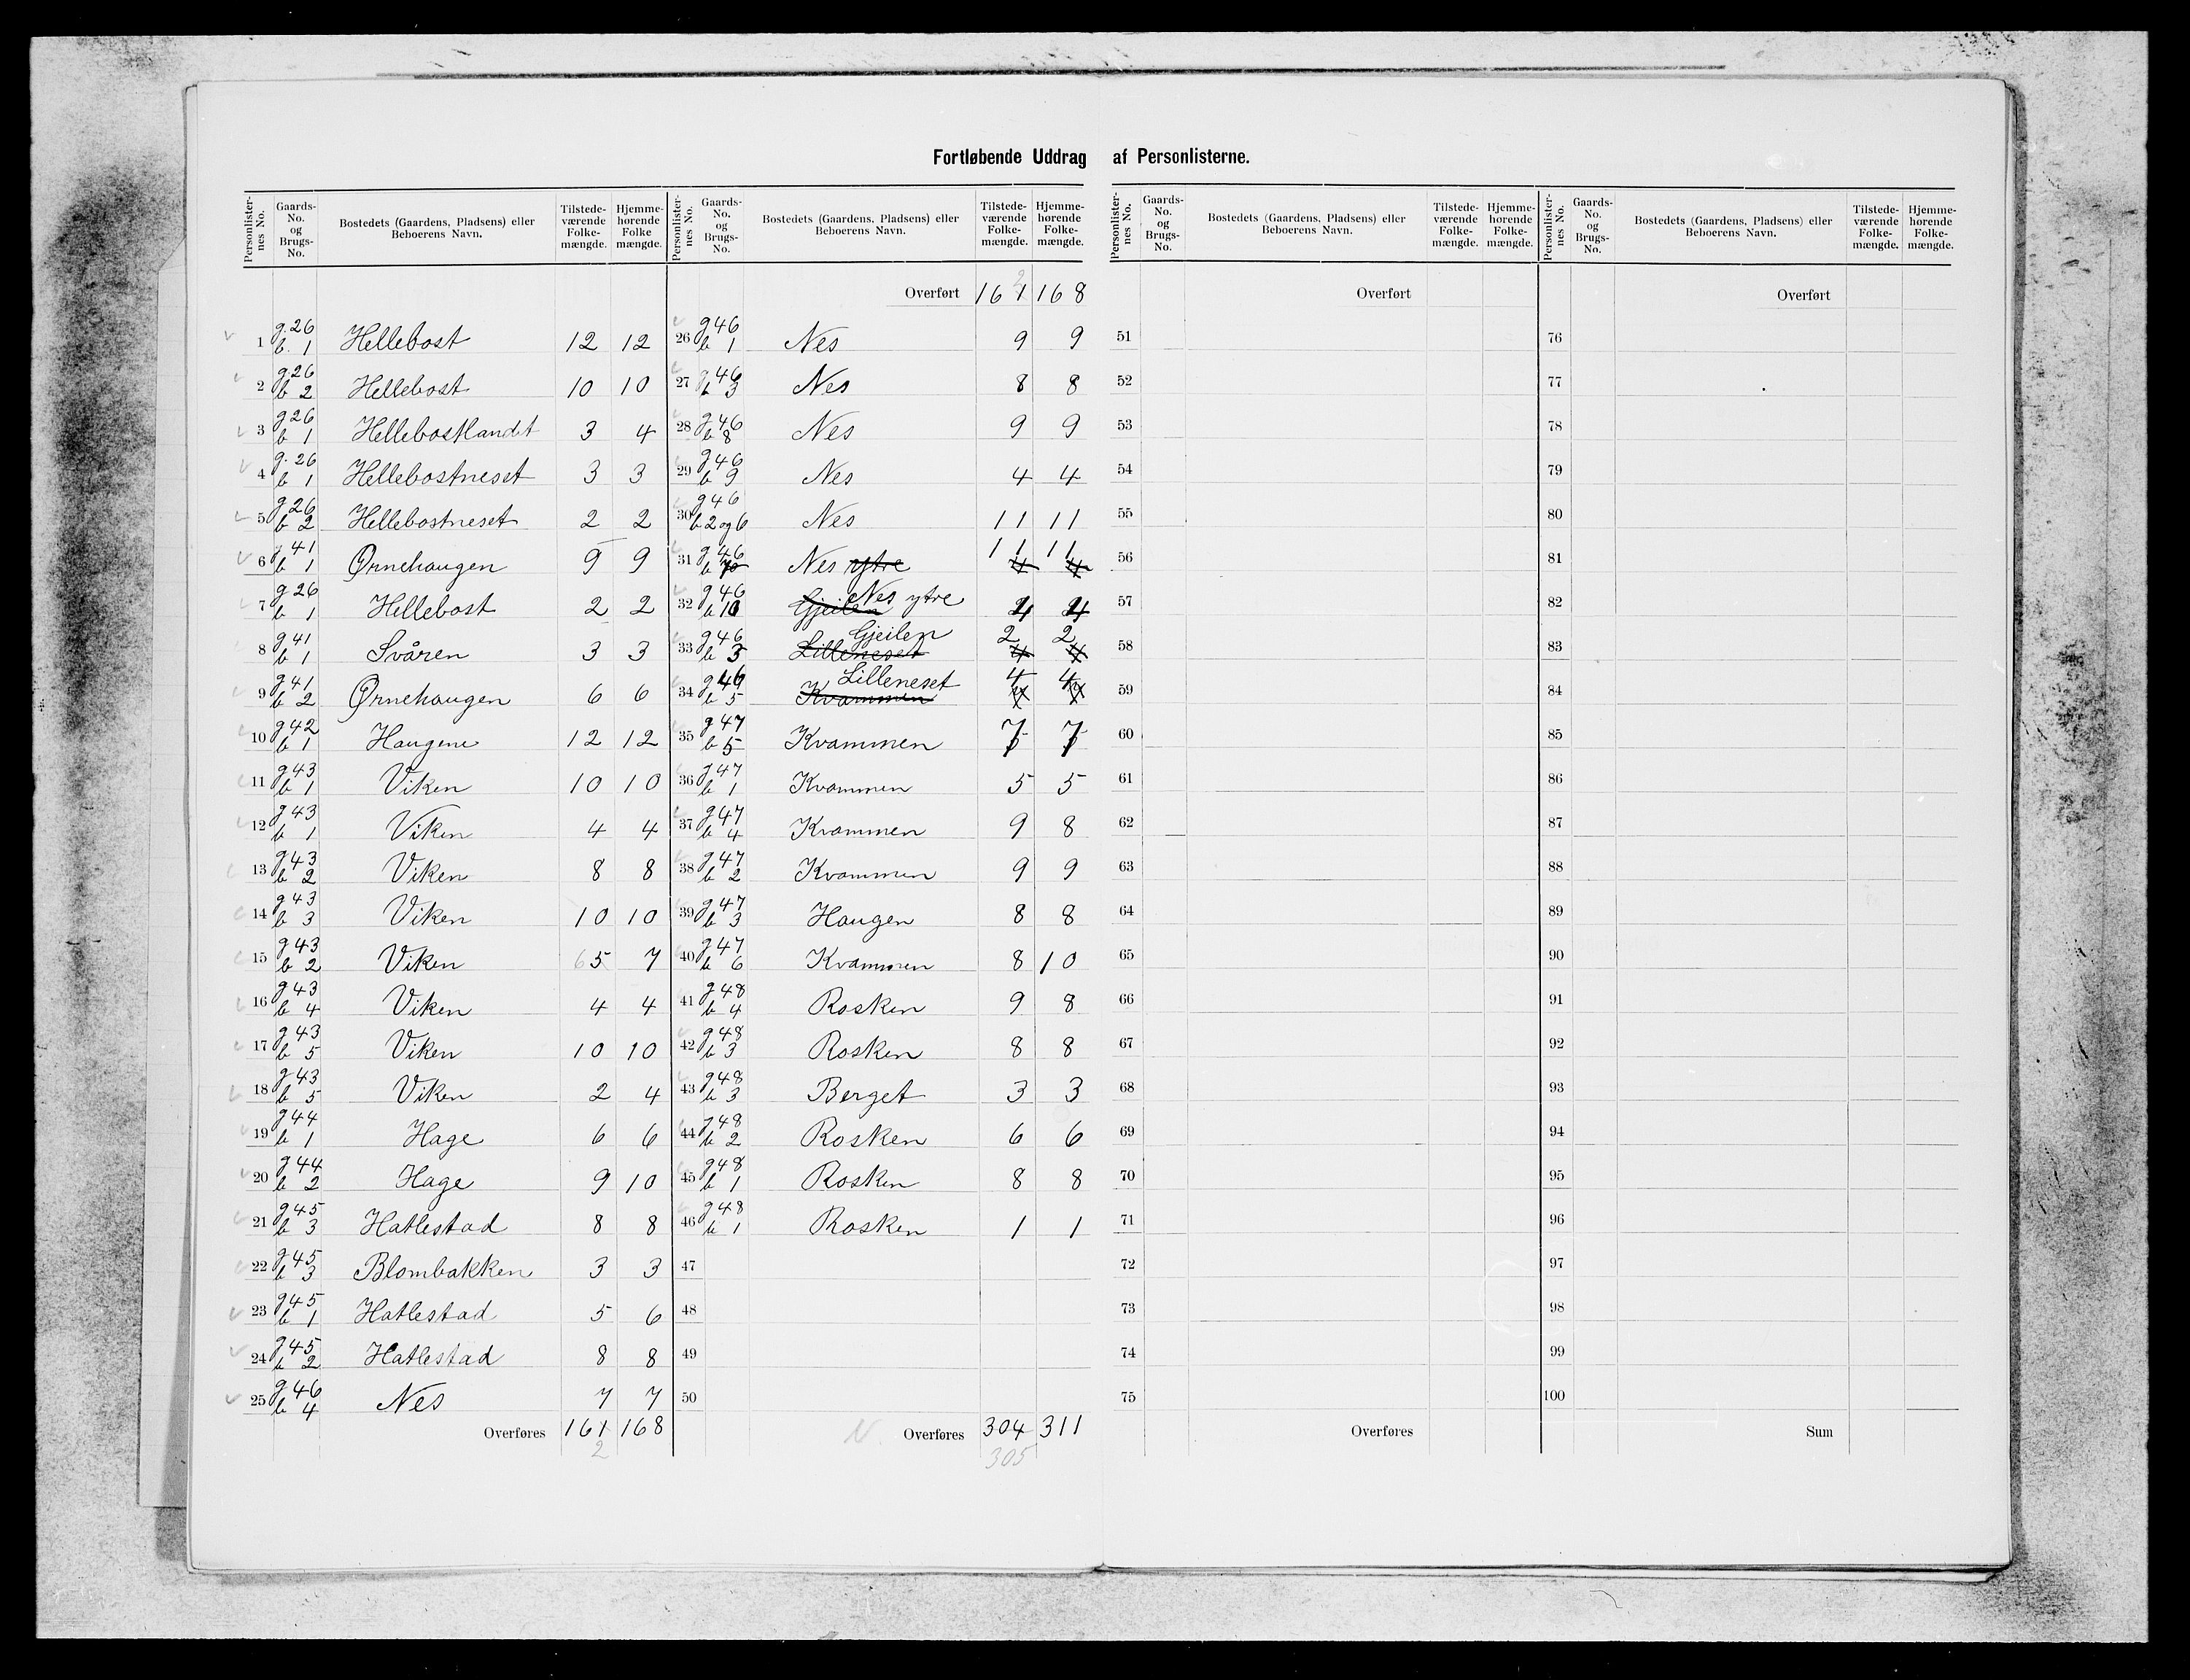 Fortløbende Uddrag af Personlisterne.
Personlister-nes No. Gaards-No. og Brugs-No. Bostedets (Gaardens, Pladsens) eller Beboerens Navn. Tilstede-værende Folke-mængde. Hjemme-hørende Folke mængde.
1 g. 26 b. 1 Hellebost 12 12
2 g 26 b 2 Hellebost 10 10
3 g 26 b 1 Hellebostlandet 3 4
4 g. 26 b 1 Hellebostneset 3 3
5 g 26 b 2 Hellebostneset 2 2
6 g 41 b 1 Ørnehaugen 9 9
7 g 26 b 1 Hellebost 2 2
8 g 41 b 1 Svåren 3 3
9 g 41 b 2 Ørnehaugen 6 6
10 g 42 b 1 Haugene 12 12
11 g 43 b 1 Viken 10 10
12 g 43 b 1 Viken 4 4
13 g 43 b 2 Viken 8 8
14 g 43 b 3 Viken 10 10
15 g 43 b 2 Viken 6 5 7
16 g 43 b 4 Viken 4 4
17 g 43 b 5 Viken 10 10
18 g 43 b 5 Viken 2 4
19 g 44 b 1 Hage 6 6
20 g 44 b 2 Hage 9 10
21 g 45 b 3 Hatlestad 8 8
22 g 45 b 3 Blombakken 3 3
23 g 45 b 1 Hatlestad 5 6
24 g 45 b 2 Hatlestad 8 8
25 g 46 b 4 Nes 7 7
Overføres 161 168
2
Personlister-nes No. Gaards-No. og Brugs-No. Bostedets (Gaardens, Pladsens) eller Beboerens Navn. Tilstede-værende Folke-mængde. Hjemme-hørende Folke-mængde.
2
Overført 161 168
26 g 46 b 1 Nes 9 9
27 g 46 b 3 Nes 8 8
28 g 46 b 8 Nes 9 9
29 g 46 b 9 Nes 4 4
30 g 46 b 2 og 6 Nes 11 11
31 g 46 b Nes ytre 11 11
32 g 46 b 10 Gjeilen Nes ytre 4 4
33 g 46 b 3 Lilleneset Gjeilen 2 2
34 g 46 b 5 Kvammen Lilleneset 4 4
35 g 47 b 5 Kvammen 7 7
36 g 47 b 1 Kvammen 5 5
37 g 47 b 4 Kvammen 9 8
38 g 47 b 2 Kvammen 9 9
39 g 47 b 3 Haugen 8 8
40 g 47 b 6 Kvammen 8 10
41 g 48 b 4 Rosken 9 8
42 g 48 b 3 Rosken 8 8
43 g 48 b 3 Berget 3 3
44 g 48 b 2 Rosken 6 6
45 g 48 b 1 Rosken 8 8
46 g 48 b 1 Rosken 1 1
47
48
49
50
N. Overføres 304 311
305
Personlister-nes No. Gaards-No. og Brugs-No. Bostedets (Gaardens, Pladsens) eller Beboerens Navn. Tilstede-værende Folke-mængde. Hjemme-hørende Folke-mængde.
Overført
51
52
53
54
55
56
57
58
59
60
61
62
63
64
65
66
67
68
69
70
71
72
73
74
75
Overføres
Personlister-nes No. Gaards-No. og Brugs-No. Bostedets (Gaardens, Pladsens) eller Beboerens Navn. Tilstede-værende Folke-mængde. Hjemme-hørende Folke-mængde.
Overført
76
77
78
79
80
81
82
83
84
85
86
87
88
89
90
91
92
93
94
95
96
97
98
99
100
Sum